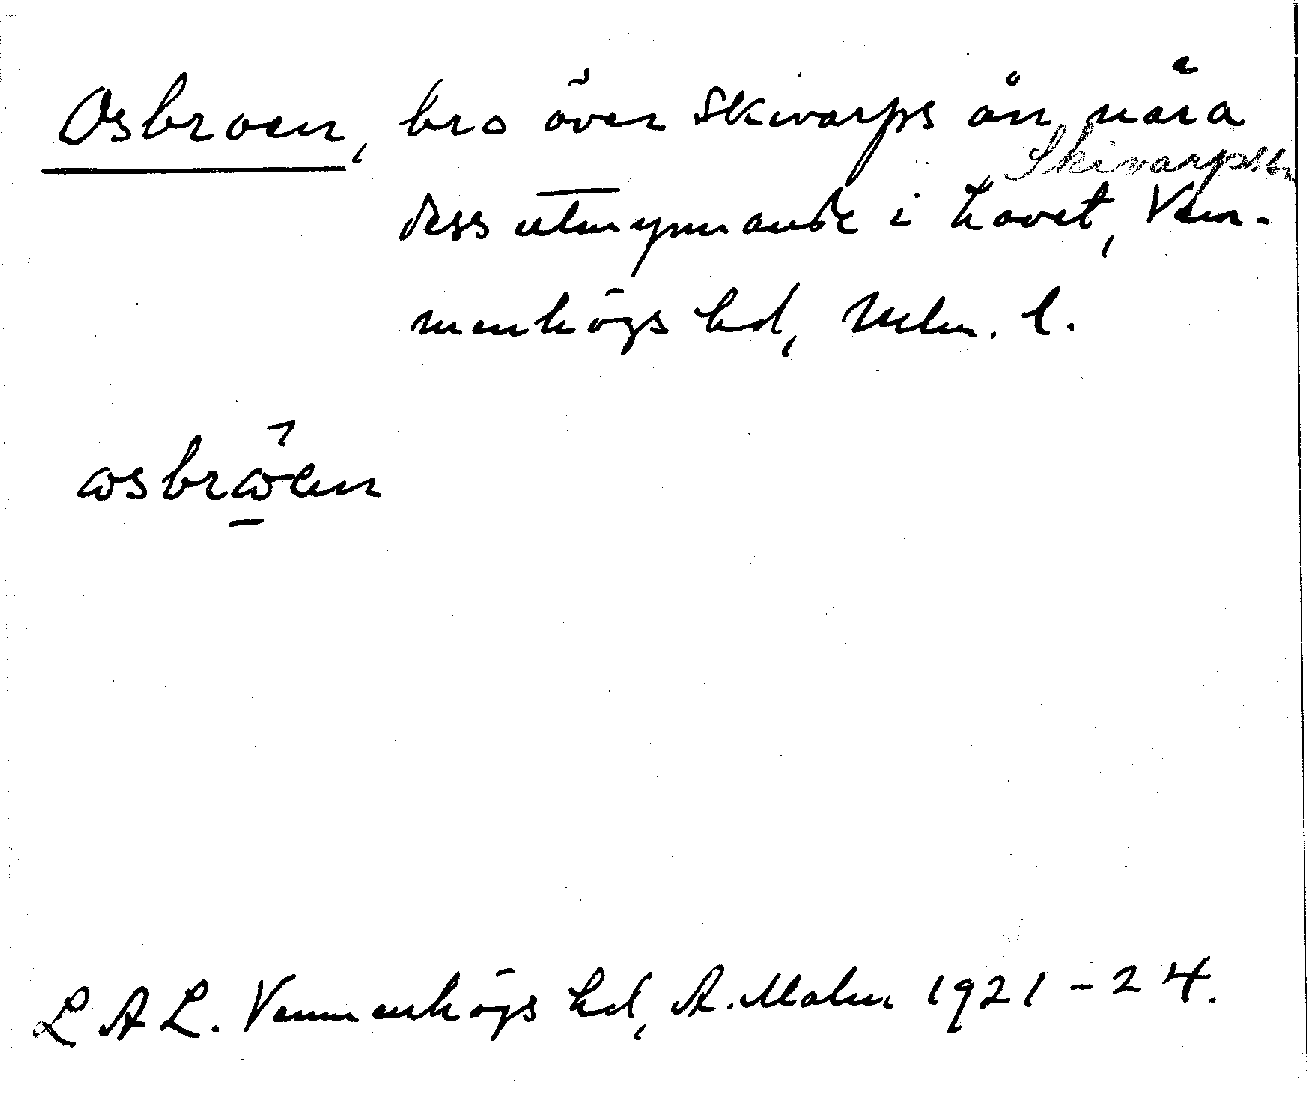 Osbroen, bro över Skivarps ån nära
Skivarps
dess utmynnande i havet, Vem-
menhögs hd, Mlm. l.
ɷsbrɷ́en
L A L. Vemmenhögs hd, A. Malm 1921-24.